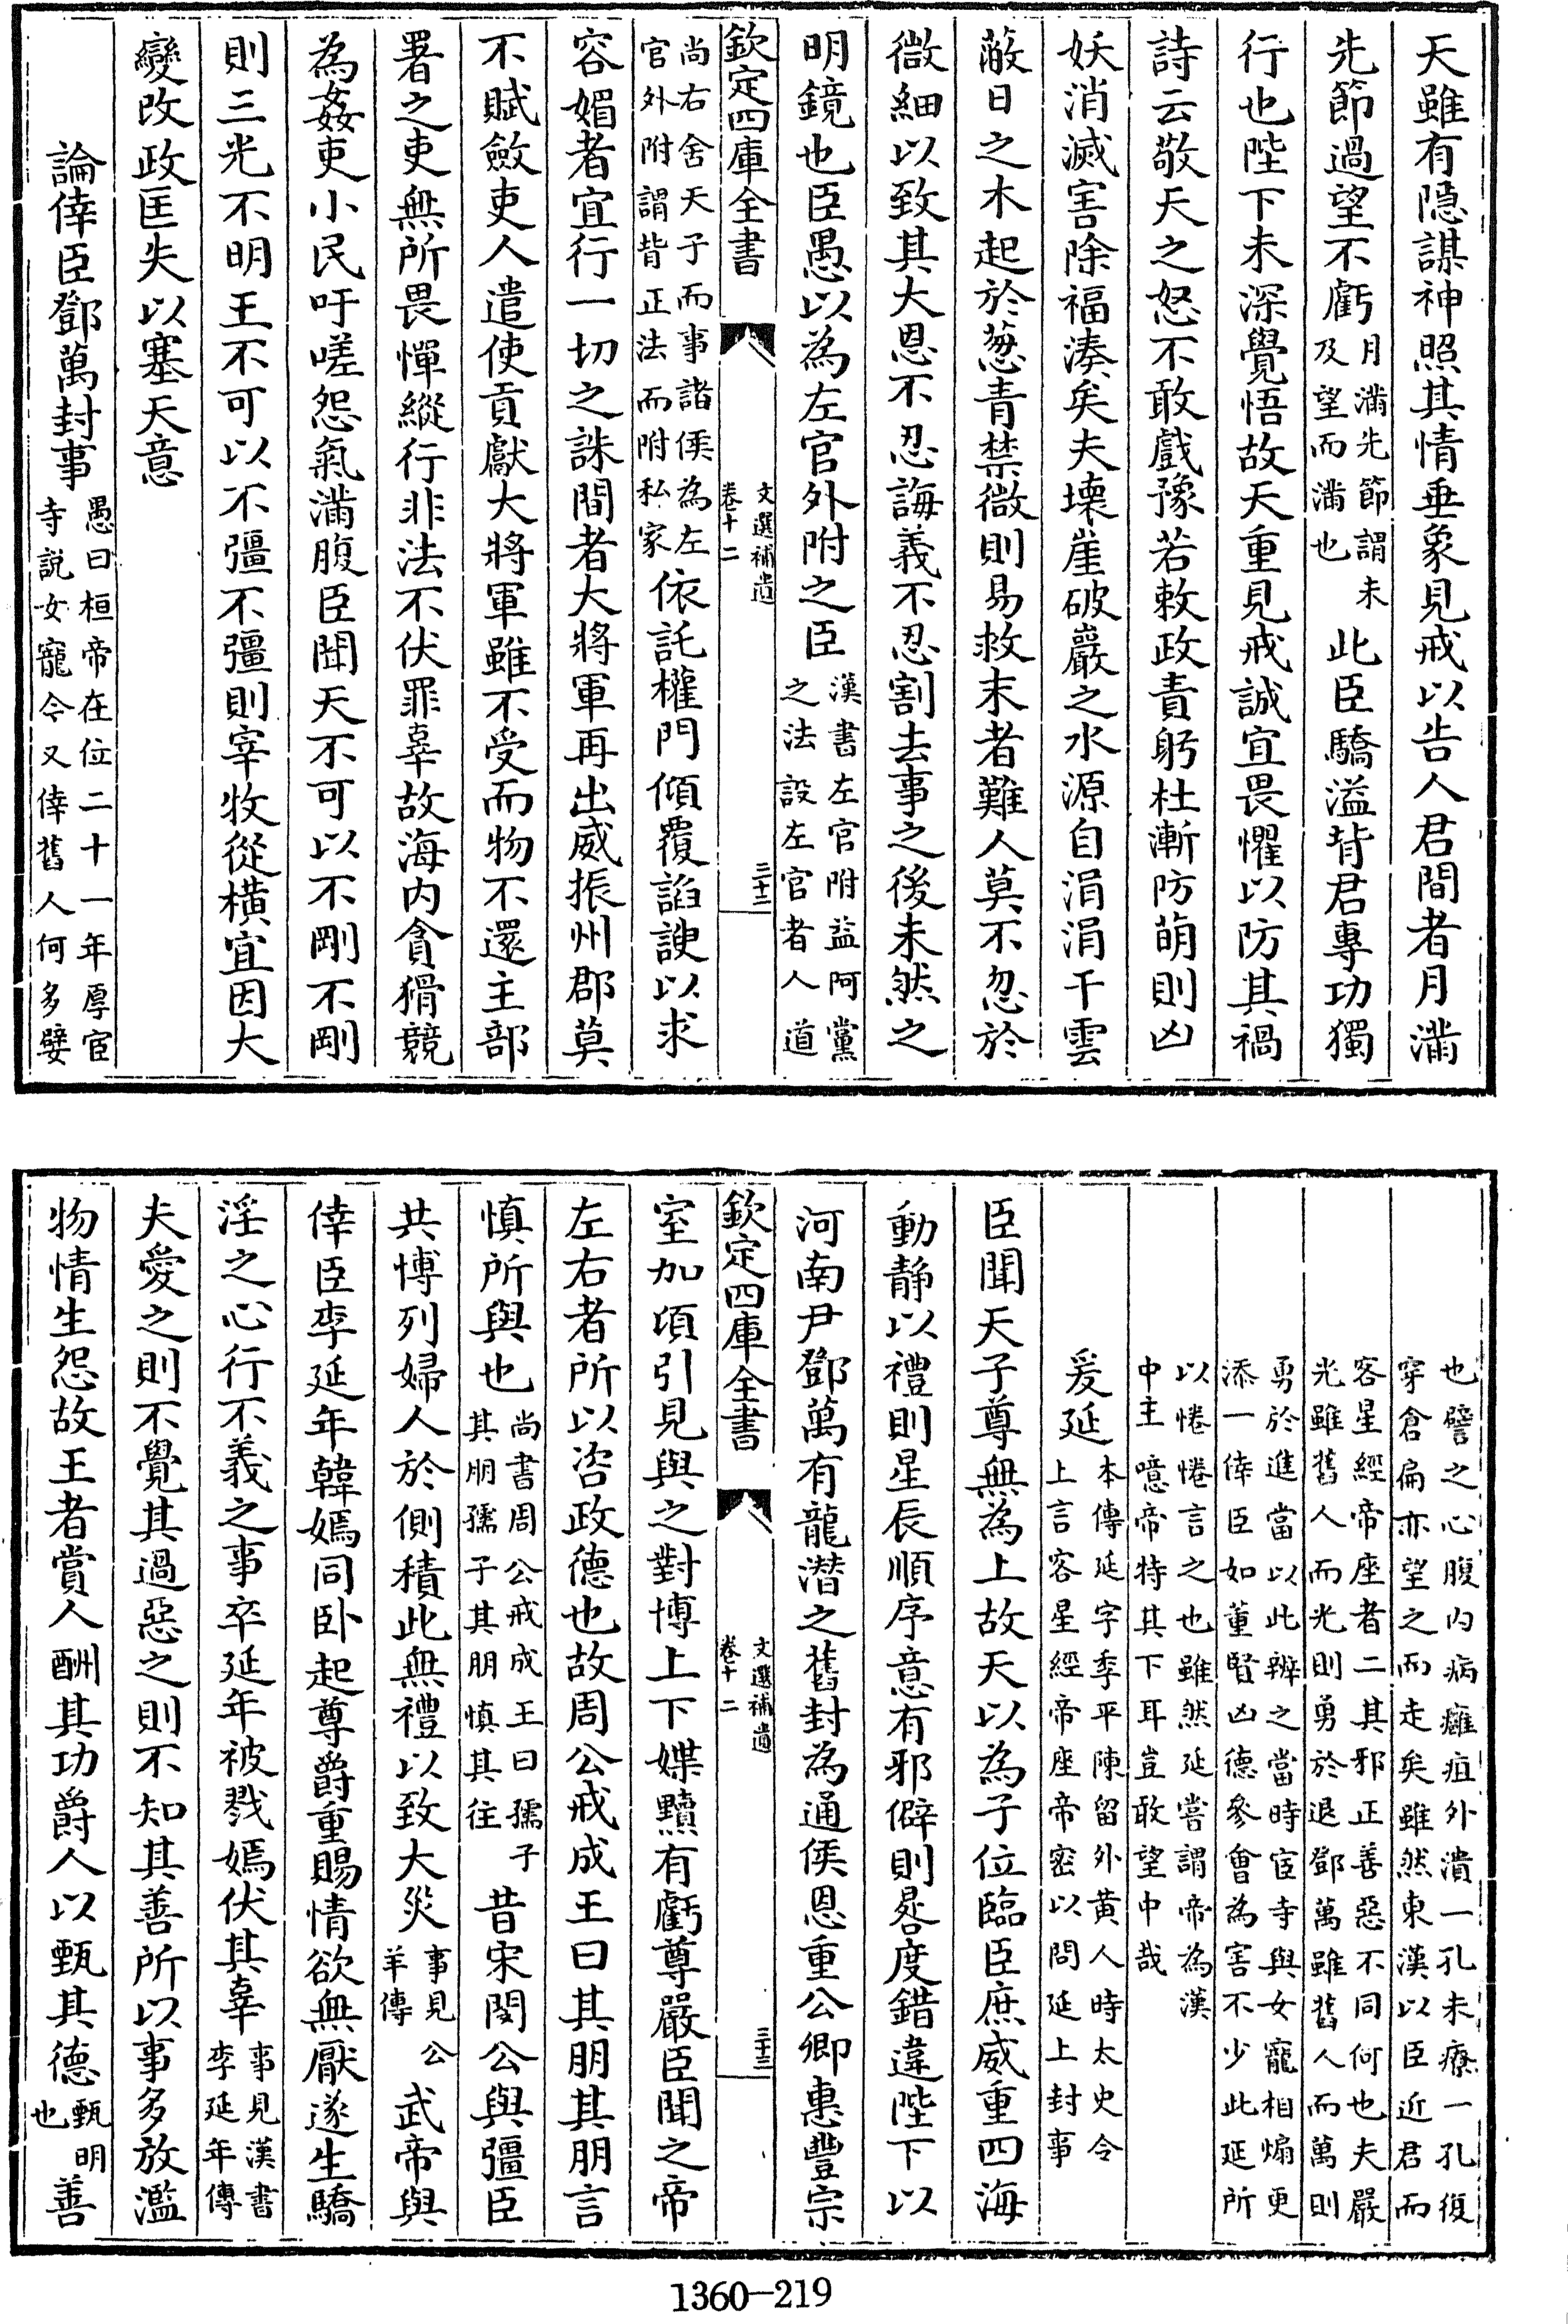 天雖有隱謀神照其情垂象見戒以告人君間者月滿
先節過望不虧月滿先節謂未及望而滿也此臣驕溢背君專功獨
行也陛下未深覺悟故天重見戒誠宜畏懼以防其禍
詩云敬天之怒不敢戲豫若敕政責躬杜漸防萌則凶
妖消滅害除福湊矣夫壞崖破巖之水源自涓涓干雲
蔽日之木起於葱青禁微則易救末者難人莫不忽於
微細以致其大恩不忍誨義不忍割去事之後未然之
明鏡也臣愚以為左官外附之臣漢書左官附益阿黨之法設左官者人道
欽定四庫全書 文選補遺 卷十二 三十二
尚右舍天子而事諸侯為左官外附謂背正法而附私家依託權門傾覆諂諛以求
容媚者宜行一切之誅間者大將軍再出威振州郡莫
不賦斂吏人遣使貢獻大將軍雖不受而物不還主部
署之吏無所畏憚縱行非法不伏罪辜故海內貪猾競
為姦吏小民吁嗟怨氣滿腹臣聞天不可以不剛不剛
則三光不明王不可以不彊不彊則宰牧從橫宜因大
變改政匡失以塞天意
論倖臣鄧萬封事愚曰桓帝在位二十一年厚宦寺説女寵令又倖舊人何多嬖
也譬之心腹內病癰疽外潰一孔未療一孔復穿倉扁亦望之而走矣雖然東漢以臣近君而
客星經帝座者二其邪正善惡不同何也夫嚴光雖舊人而光則勇於退鄧萬雖舊人而萬則
勇於進當以此辨之當時宦寺與女寵相煽更添一倖臣如董賢凶德參會為害不少此延所
以惓惓言之也雖然延嘗謂帝為漢中主噫帝特其下耳豈敢望中哉
爰延本傳延字季平陳留外黃人時太史令上言客星經帝座帝密以問延上封事
臣聞天子尊無為上故天以為子位臨臣庶威重四海
動靜以禮則星辰順序意有邪僻則晷度錯違陛下以
河南尹鄧萬有龍潛之舊封為通侯恩重公卿惠豐宗
欽定四庫全書 文選補遺 卷十二 三十三
室加頃引見與之對博上下媟黷有虧尊嚴臣聞之帝
左右者所以咨政德也故周公戒成王曰其朋其朋言
慎所與也尚書周公戒成王曰孺子其朋孺子其朋慎其往昔宋閔公與彊臣
共博列婦人於側積此無禮以致大災事見公羊傳武帝與
倖臣李延年韓嫣同卧起尊爵重賜情欲無厭遂生驕
淫之心行不義之事卒延年被戮嫣伏其辜事見漢書李延年傳
夫愛之則不覺其過惡之則不知其善所以事多放濫
物情生怨故王者賞人酬其功爵人以甄其德甄明也善
1360-219